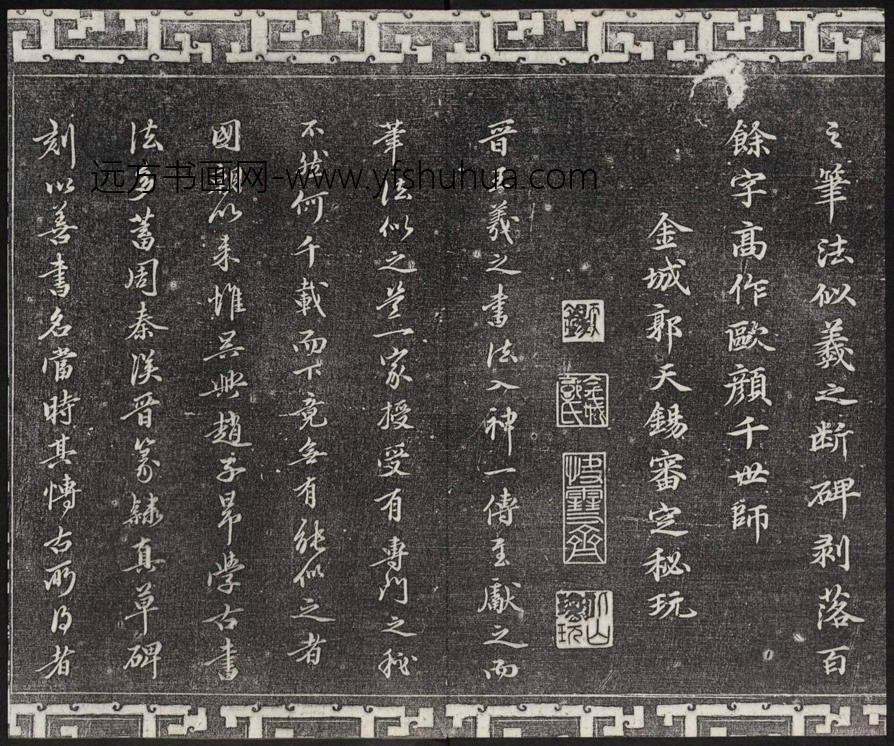 之筆法似羲之断碑剥落百
餘字髙作歐顔千世師
金城郭天錫審定秘玩
晋王羲之書法入神一傳至獻之而
筆法似之
一家授受有專門之秘
不然何千載而下竟無有能似之者
國朝以来惟吴興趙子昂學古書
法多蓄周秦漢晋篆隸真草碑
刻以善書名當時其慱古所得者
金城郭氏
快雪齋
远方书画网-www.yfshuhua.com